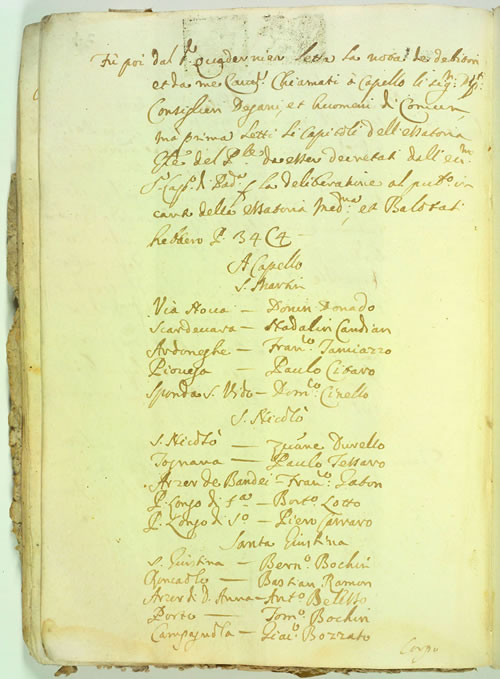 Fù poi dal Sr Quadernier letta la nota de debitori
et da me Canc.r Chiamati à Capello li Sig.ri
Consiglieri Degani, et huomeni di Comun,
mà prima letti li Capitoli dell'essatoria
del da esser decretati dall'
Cap.o di Pad.a la deliberatione al in
carta della essatoria Med.ma, et Balotati
hebbero P. 34 C 4
A Capello
S. Martin
Via Nova – Donin Donado
Scardevara – Nadalin Candian
Ardoneghe – Fran.co Tamiazzo
Piovega – Paulo Cibaro
Sponda S. Vido – Dom.co Cinello
S. Nicolò
S. Nicolò – Zuane Durello
Tognana – Paulo Tessaro
Arzer de Bandei – Fran.co Gaton
P. Longo di S.a – Bort.o Lotto
P. Longo di S.o – Piero Carraro
Santa Giustina
S. Giustina – Bern.o Bochin
Roncadlo – Bastian Ramon
Arzer di D. Anna – Ant.o Beletto
Porto – Tom.o Bochin
Campagnola – Giac.o Bozzato
Corgn